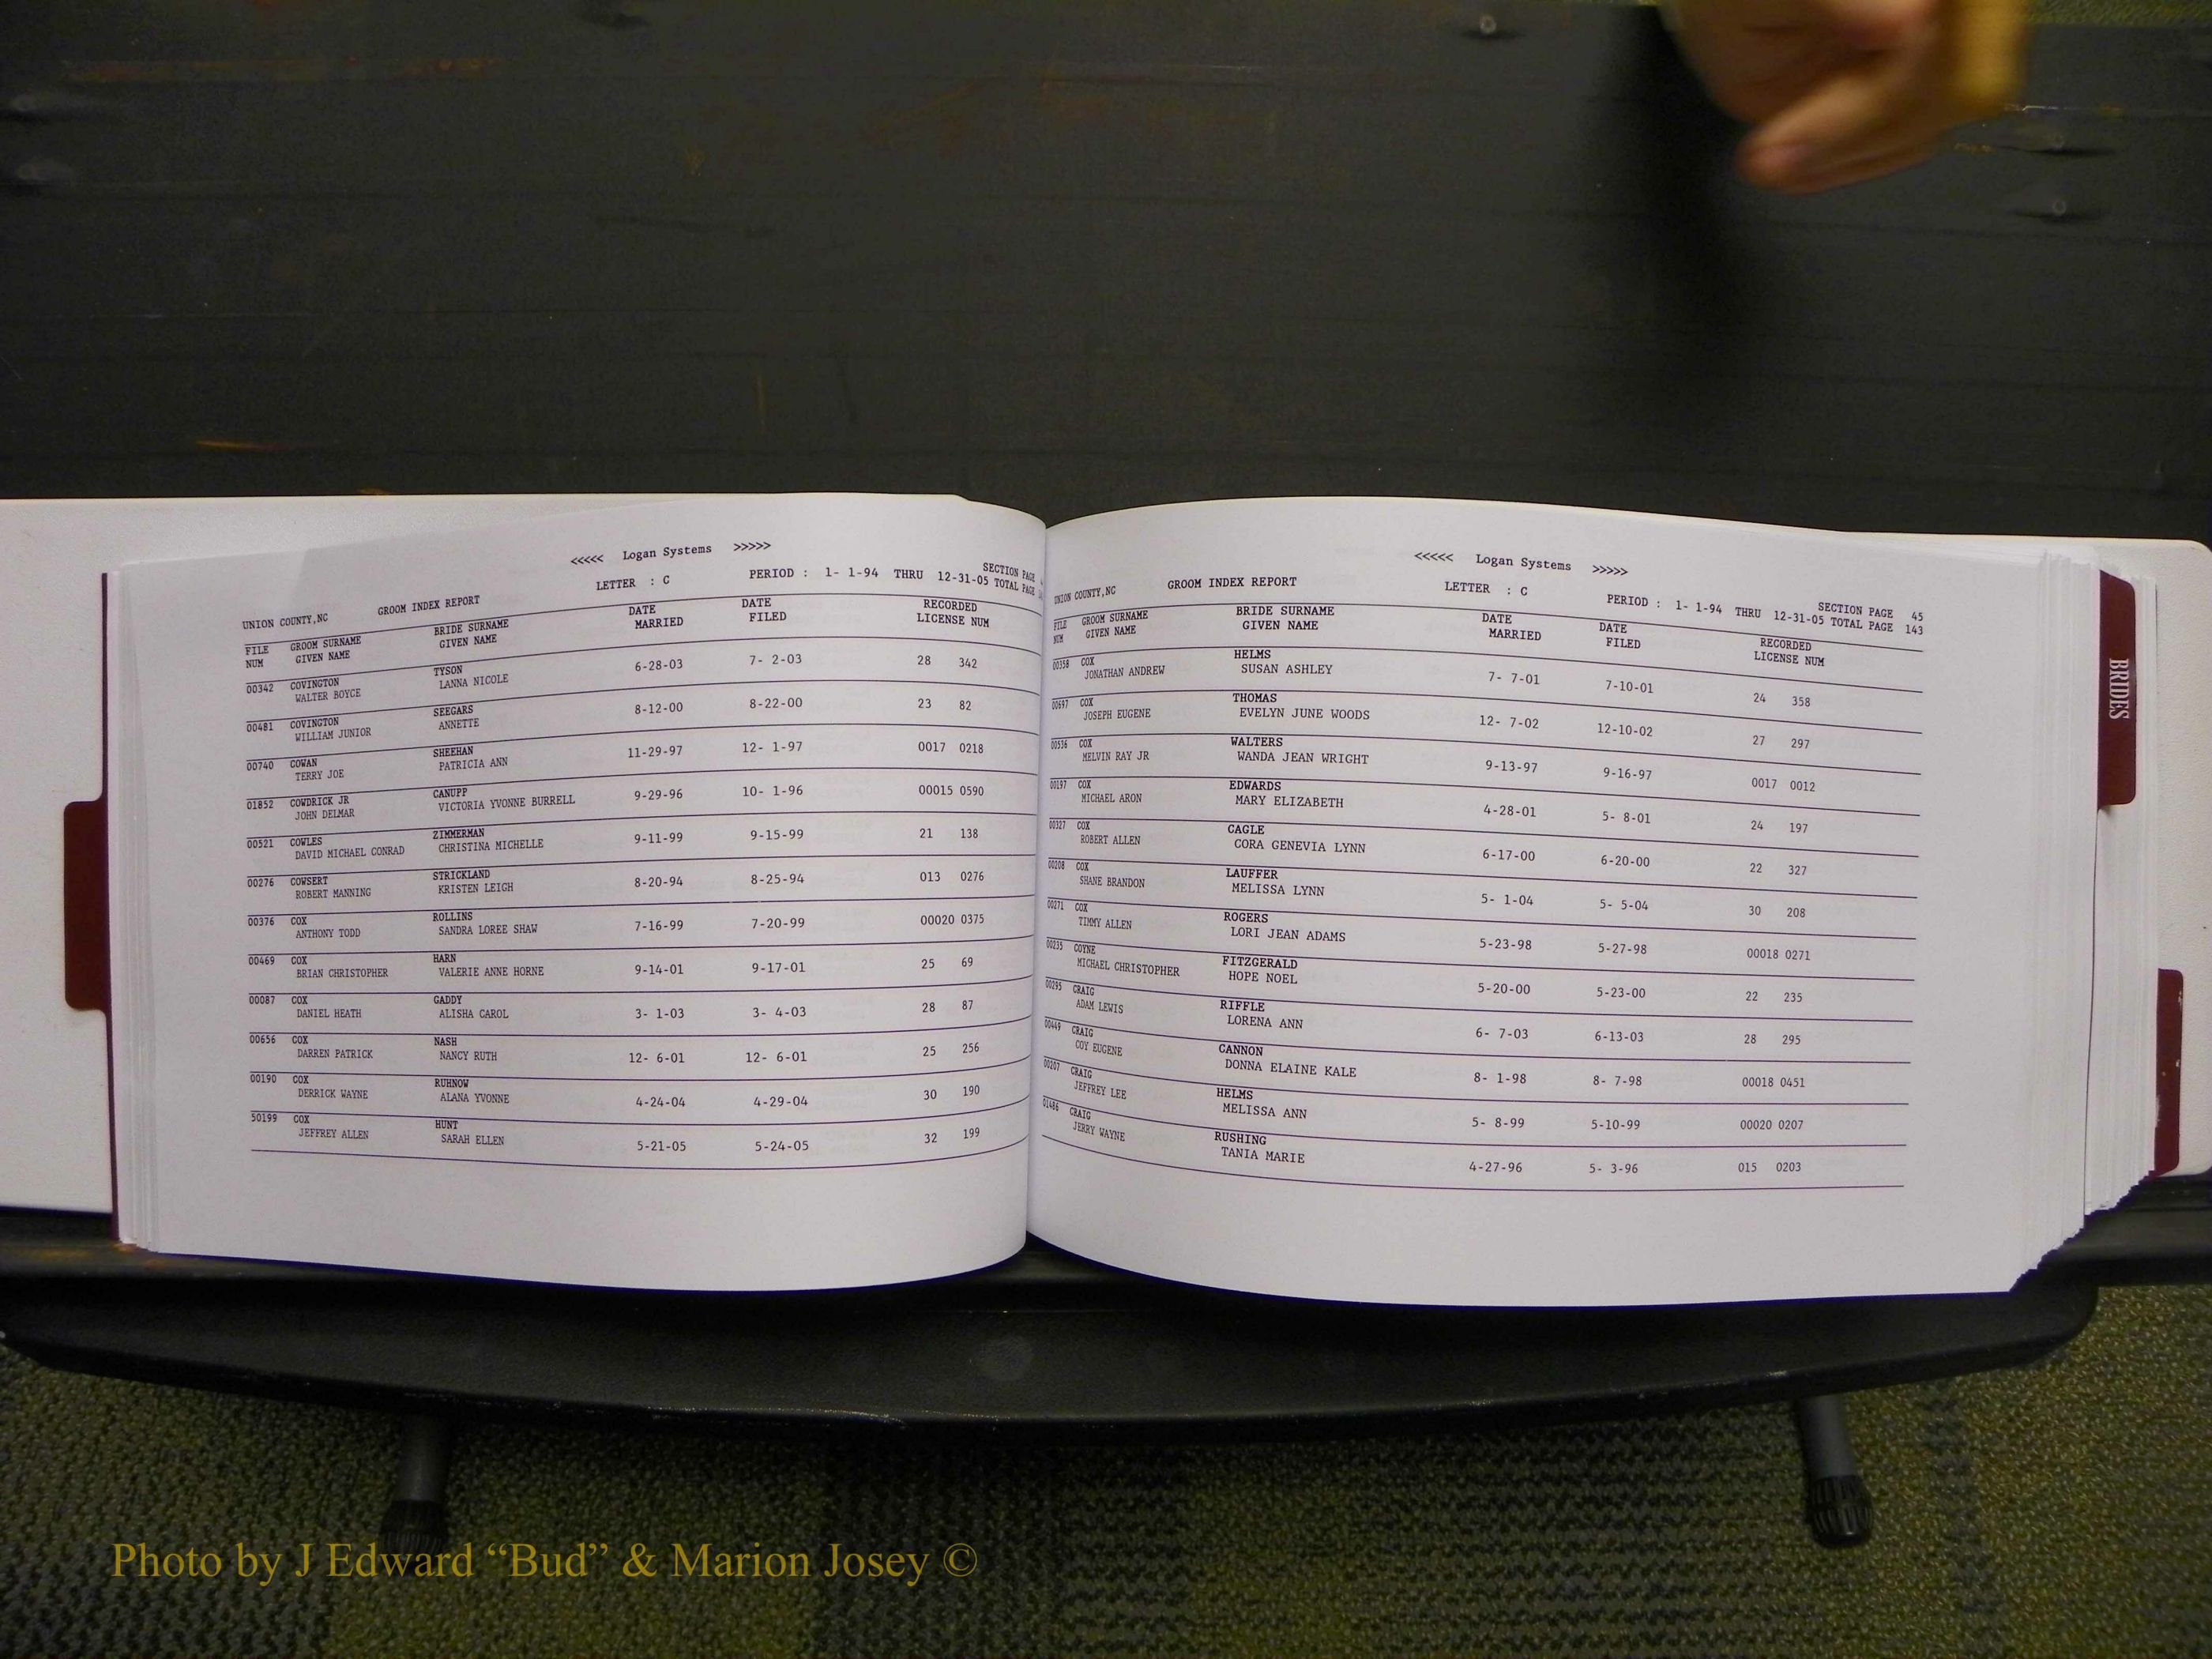 <<<<< Logan Systems >>>>>
UNION COUNTY,NC GROOM INDEX REPORT LETTER : C PERIOD : 1- 1-94 THRU 12-31-05 SECTION PAGE
TOTAL PAGE
FILE GROOM SURNAME BRIDE SURNAME DATE DATE RECORDED
NUM GIVEN NAME GIVEN NAME MARRIED FILED LICENSE NUM
00342 COVINGTON TYSON 6-28-03 7- 2-03 28 342
WALTER BOYCE LANNA NICOLE
00481 COVINGTON SEEGARS 8-12-00 8-22-00 23 82
WILLIAM JUNIOR ANNETTE
00740 COWAN SHEEHAN 11-29-97 12- 1-97 0017 0218
TERRY JOE PATRICIA ANN
01852 COWDRICK JR CANUPP 9-29-96 10- 1-96 00015 0590
JOHN DELMAR VICTORIA YVONNE BURRELL
00521 COWLES ZIMMERMAN 9-11-99 9-15-99 21 138
DAVID MICHAEL CONRAD CHRISTINA MICHELLE
00276 COWSERT STRICKLAND 8-20-94 8-25-94 013 0276
ROBERT MANNING KRISTEN LEIGH
00376 COX ROLLINS 7-16-99 7-20-99 00020 0375
ANTHONY TODD SANDRA LOREE SHAW
00469 COX HARN 9-14-01 9-17-01 25 69
BRIAN CHRISTOPHER VALERIE ANNE HORNE
00087 COX GADDY 3- 1-03 3- 4-03 28 87
DANIEL HEATH ALISHA CAROL
00656 COX NASH 12- 6-01 12- 6-01 25 256
DARREN PATRICK NANCY RUTH
00190 COX RUHNOW 4-24-04 4-29-04 30 190
DERRICK WAYNE ALANA YVONNE
50199 COX HUNT 5-21-05 5-24-05 32 199
JEFFREY ALLEN SARAH ELLEN
<<<<< Logan Systems >>>>>
UNION COUNTY,NC GROOM INDEX REPORT LETTER : C PERIOD : 1- 1-94 THRU 12-31-05 SECTION PAGE 45
TOTAL PAGE 143
FILE GROOM SURNAME BRIDE SURNAME DATE DATE RECORDED
NUM GIVEN NAME GIVEN NAME MARRIED FILED LICENSE NUM
00358 COX HELMS 7- 7-01 7-10-01 24 358
JONATHAN ANDREW SUSAN ASHLEY
00697 COX THOMAS 12- 7-02 12-10-02 27 297
JOSEPH EUGENE EVELYN JUNE WOODS
00536 COX WALTERS 9-13-97 9-16-97 0017 0012
MELVIN RAY JR WANDA JEAN WRIGHT
00197 COX EDWARDS 4-28-01 5- 8-01 24 197
MICHAEL ARON MARY ELIZABETH
00327 COX CAGLE 6-17-00 6-20-00 22 327
ROBERT ALLEN CORA GENEVIA LYNN
00208 COX LAUFFER 5- 1-04 5- 5-04 30 208
SHANE BRANDON MELISSA LYNN
00271 COX ROGERS 5-23-98 5-27-98 00018 0271
TIMMY ALLEN LORI JEAN ADAMS
00235 COYNE FITZGERALD 5-20-00 5-23-00 22 235
MICHAEL CHRISTOPHER HOPE NOEL
00295 CRAIG RIFFLE 6- 7-03 6-13-03 28 295
ADAM LEWIS LORENA ANN
00449 CRAIG CANNON 8- 1-98 8- 7-98 00018 0451
COY EUGENE DONNA ELAINE KALE
00207 CRAIG HELMS 5- 8-99 5-10-99 00020 0207
JEFFREY LEE MELISSA ANN
01486 CRAIG RUSHING 4-27-96 5- 3-96 015 0203
JERRY WAYNE TANIA MARIE
BRIDES
Photo by J Edward “Bud” & Marion Josey ©